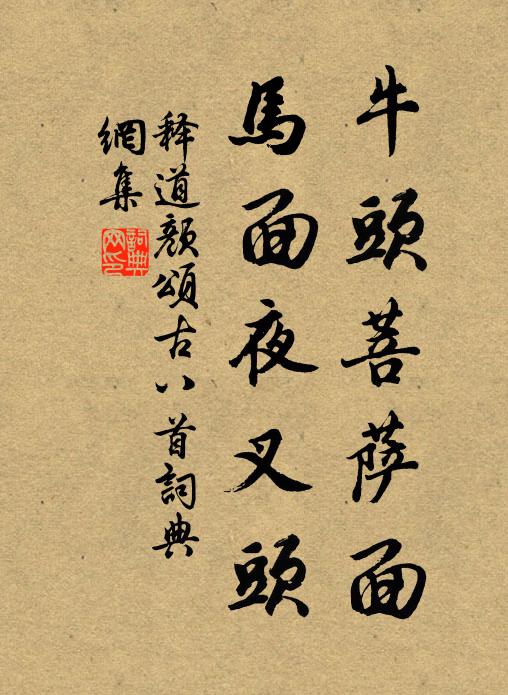 牛頭菩萨面
馬面夜叉頭
释道颜頌古八首詞典
網集
詞典
网印